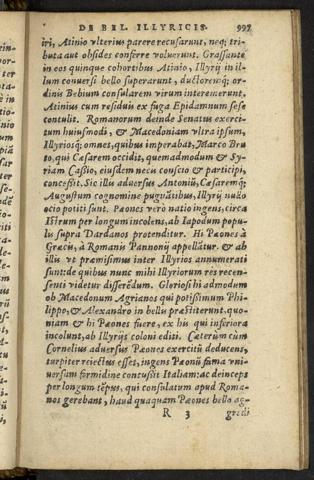 DE BEL. ILLYRICIS. 997
iri, Atinio vlterius parere recusarunt, neq; tri-
buta aut obsides conferre voluerunt. Grassante
in eos quinque cohortibus Atinio, Illyrij in il-
lum conuersi bello superarunt, ductoremq; or-
dinis Bebium consularem virum interemerunt.
Atinius cum residuis ex fuga Epidamnum sese
contulit. Romanorum deinde Senatus exerci-
tum huiusmodi, & Macedoniam vltra ipsum,
Illyriosq; omnes, quibus imperabat, Marco Bru
to, qui Cæsarem occidit, quemadmodum & Sy-
riam Cassio, eiusdem necis conscio & participi,
concessit. Sic illis aduersus Antoniũ, Cæsaremq;
Augustum cognomine pugnãtibus, Illyrij nullo
ocio potiti sunt. Pæones verò natio ingens, circa
Istrum per longum incolens, ab Iapodum popu-
lis supra Dardanos protenditur. Hi Pæones à
Græcis, à Romanis Pannonij appellãtur. & ab
illis vt præmisimus inter Illyrios annumerati
sunt: de quibus nunc mihi Illyriorum res recen-
senti videtur disserẽdum. Gloriosi hi admodum
ob Macedonum Agrianos qui potissimum Phi-
lippo, & Alexandro in bellis præstiterunt. quo-
niam & hi Pæones fuere, ex his qui inferiora
incolunt, ab Illyrijs coloni editi. Cæterùm cùm
Cornelius aduersus Pæones exercitũ deducens,
turpiter reiectus esset, ingens Pæonũ fama vni-
uersam formidine concussit Italiam: ac deinceps
per longum tẽpus, qui consulatum apud Roma-
nos gerebant, haud quaquam Pæones bello ag-
R 3 gredi